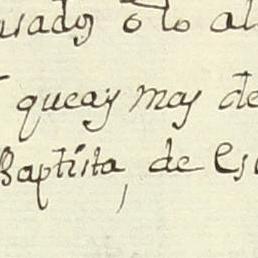 usados o lo al
queay mas de
Baptista, de Es